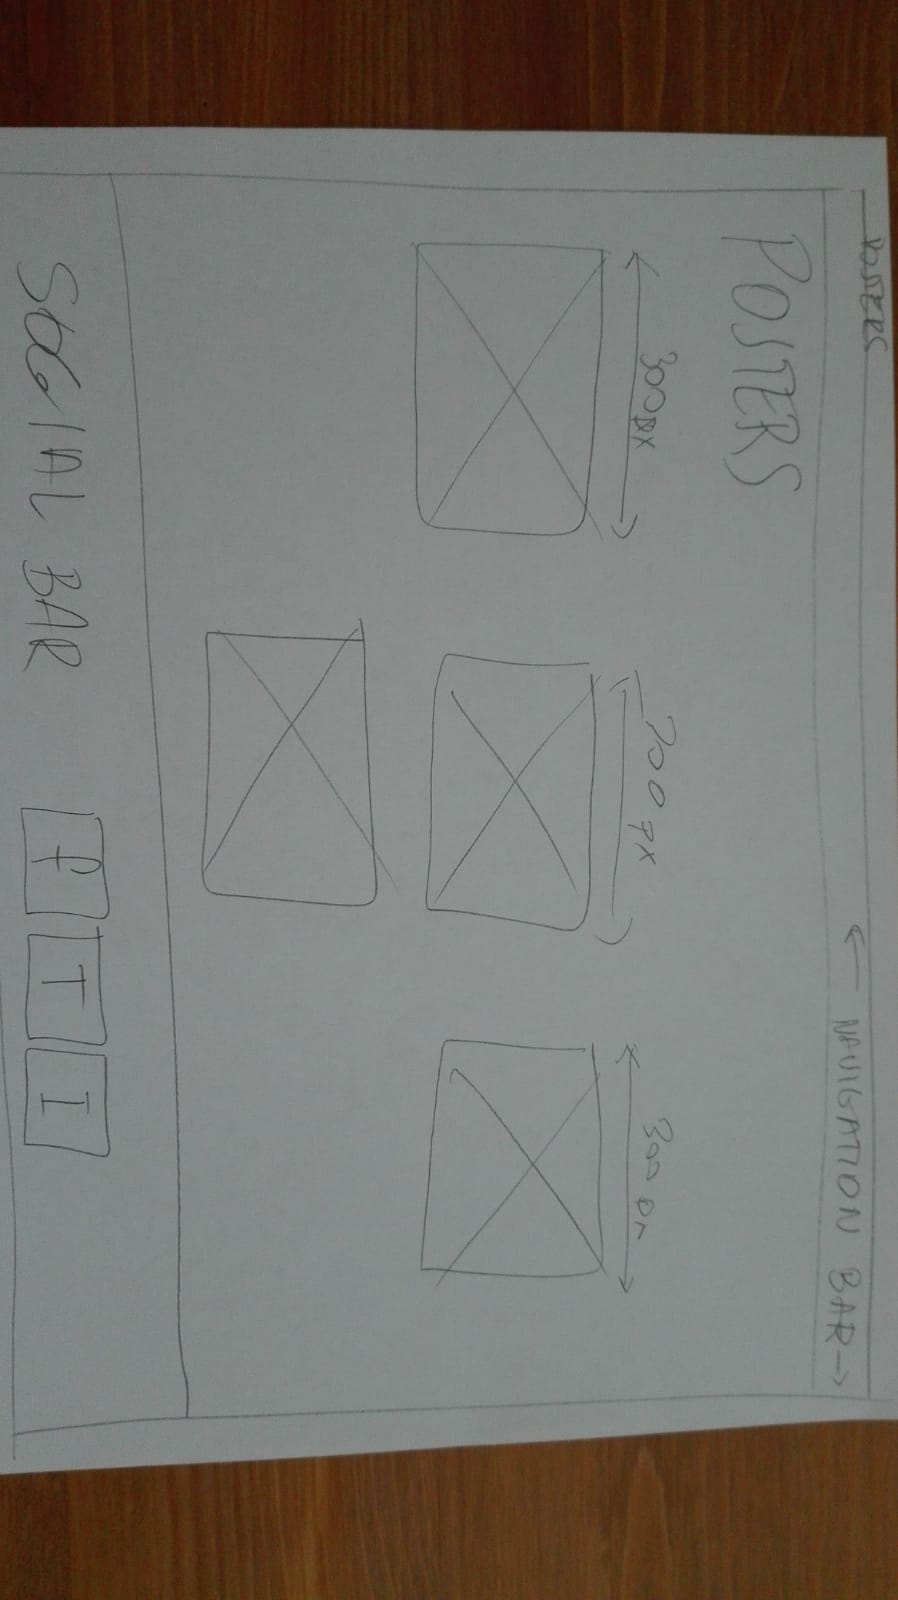 POSTERS
← NAVIGATION BAR →
POSTERS
300px 300px 300px
SOCIAL BAR f T I